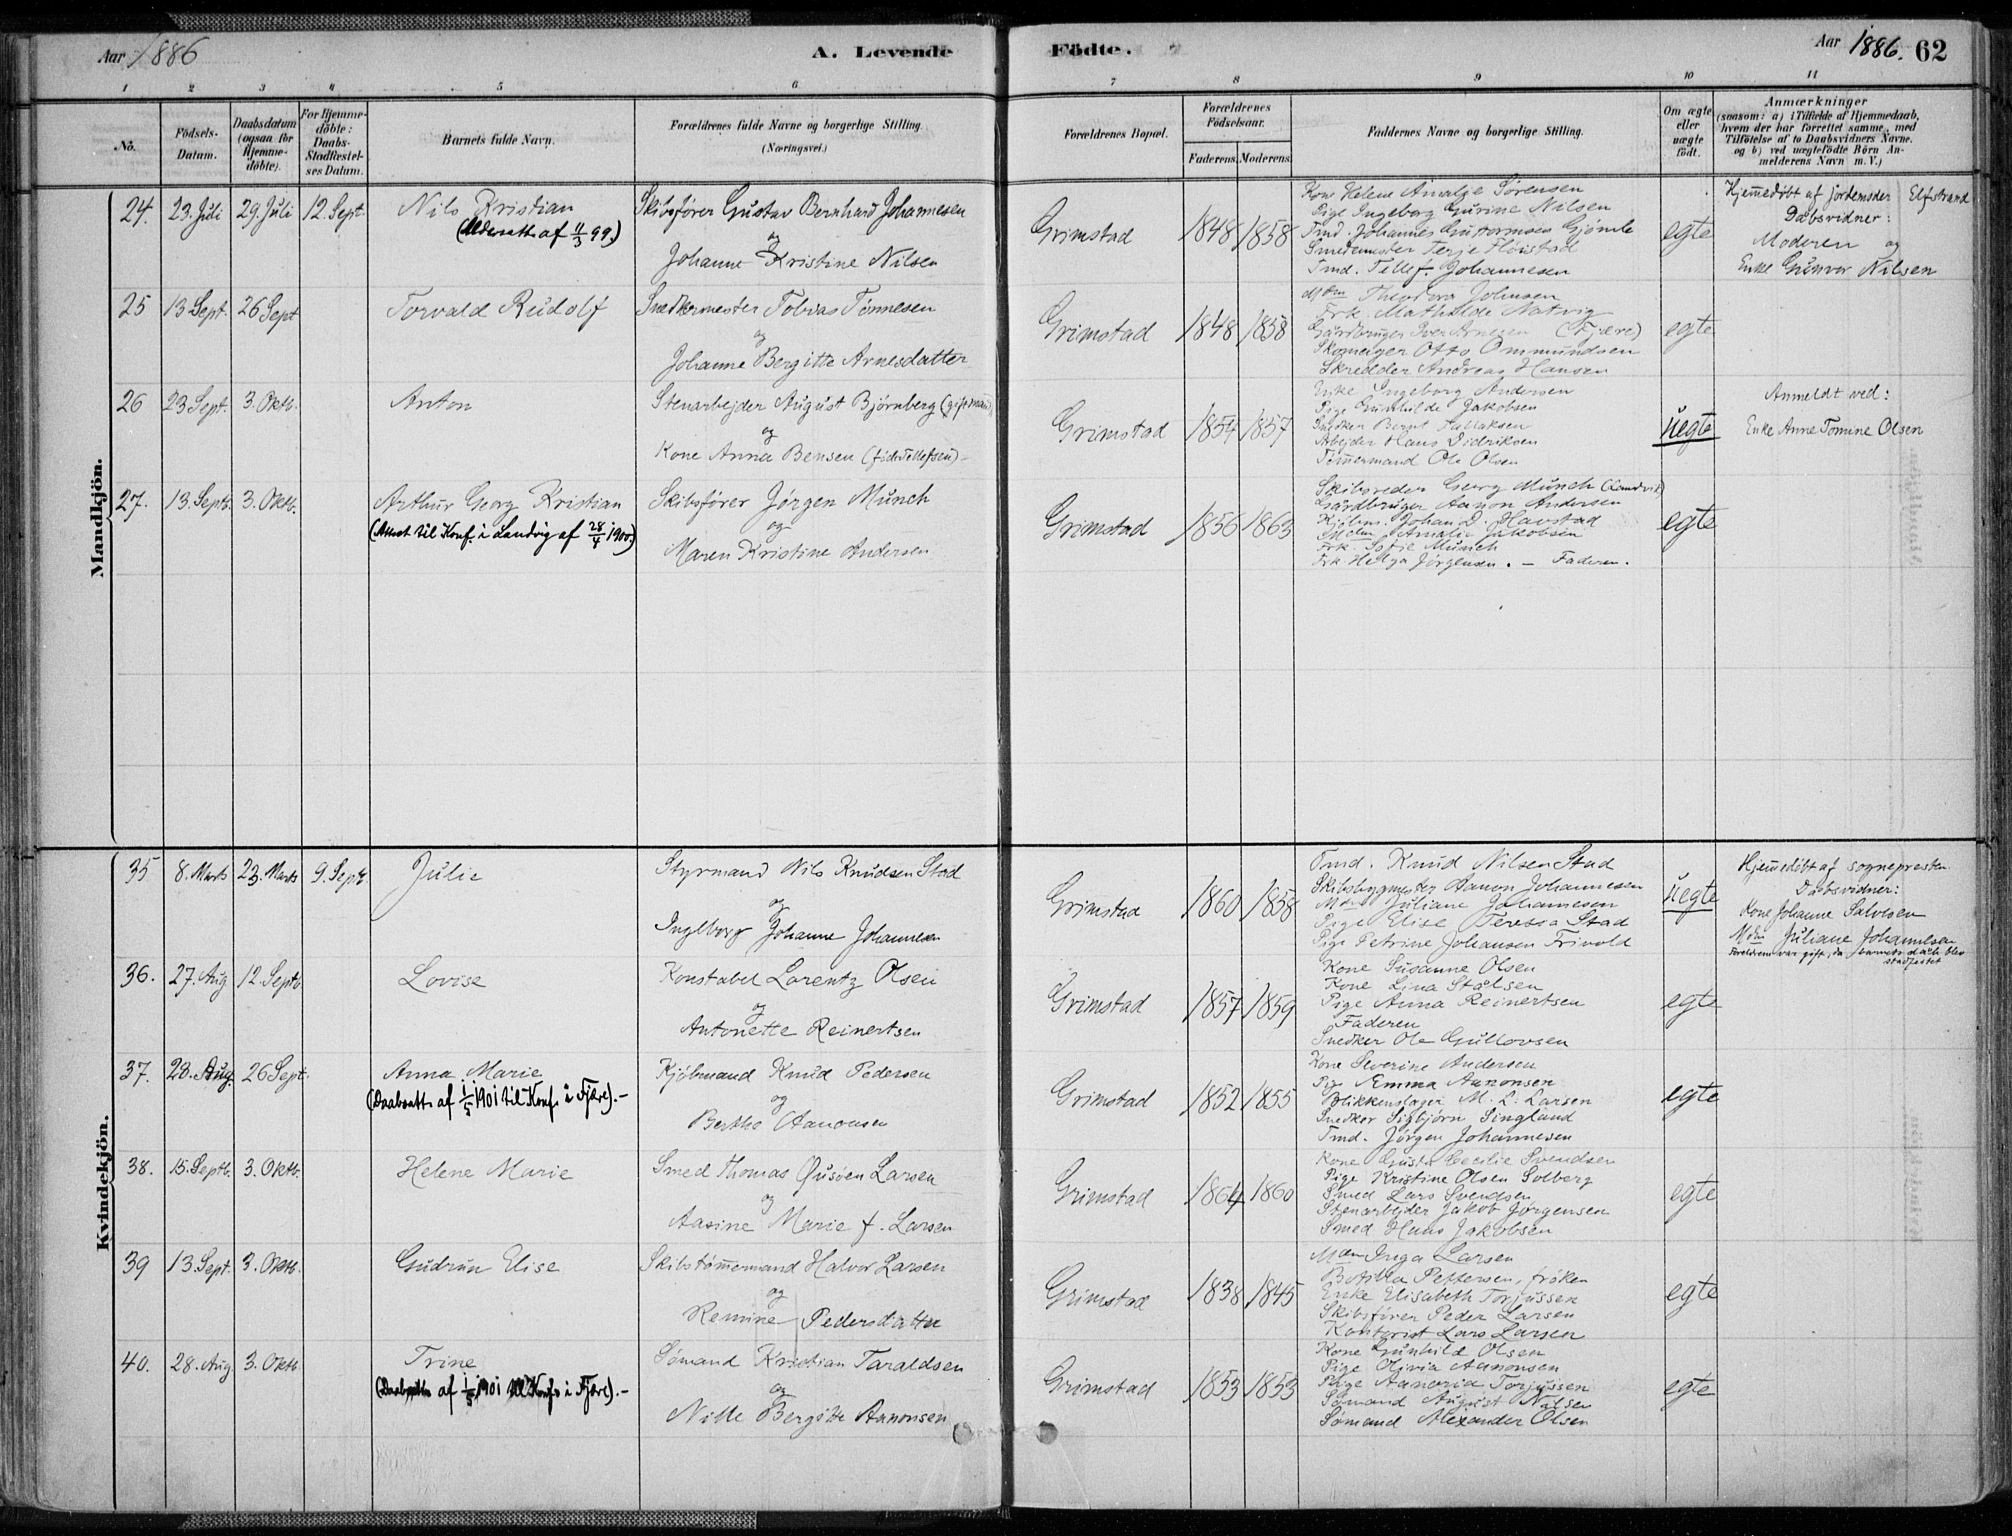 Aar 1886
A. Levende
Födte.
Aar 1886. 62
1 2 3 4 5 6 7 8 9 10 11
No.
Födsels-Datum.
Daabsdatum (ogsaa for Hjemme-döbte).
For Hjemme-döbte: Daabs-Stadfæstel-ses Datum.
Barnets fulde Navn.
Forældrenes fulde Navne og borgerlige Stilling.
(Næringsvei.)
Forældrenes Bopæl.
Forældrenes Födselsaar.
Faderens. Moderens.
Faddernes Navne og borgerlige Stilling.
Om ægte eller uægte födt.
Anmærkninger
(saasom: a) i Tilfælde af Hjemmedaab, hvem der har forrettet samme, med Tilföielse af to Daabsvidners Navne, og b) ved uægtefödte Börn Anmelderens Navn m. V.)
Mandkjön.
24. 23. Juli 29. Juli 12. Sept.
Nils Kristian
(Aldersatt. af 11/3 99.)
Skibsfører Gustav Bernhard Johannesen
og
Johanne Kristine Nilsen
Grimstad 1848 1858
Kone Helene Amalie Sørensen
Pige Ingeborg Gurine Nilsen
Tmd. Johannes Guttormsen Gjömle
Smedemester Terje Fløistad
Tmd. Tellef Johannesen
egte
Hjemmedöbt af jordemoder Elfstrand
Dabsvidner:
Moderen og
Enke Gunvor Nilsen
25 13 Sept. 26 Sept
Torvald Rudolf
Snedkermester Tobias Tönnesen
og
Johanne Bergitte Arnesdatter
Grimstad 1848 1858
Mdm Theodora Johnsen
Frk. Mathilde Natvig
Gårdbruger Iver Arnesen (Fjære)
Skomager Otto Ommundsen
Skredder Andreas Hansen
egte
26 23 Sept. 3. Oktb.
Anton
Stenarbejder August Bjørnberg (gift mand)
og
Kone Anna Bensen (f. Tellefsen)
Grimstad 1854 1857
Enke Ingeborg Andersen
Pige Gunhilde Jakobsen
Snedker Bernt Isaksen
Arbejder Hans Didriksen
Tømmermand Ole Olsen
uegte
Anmeldt ved:
Enke Anne Tomine Olsen
27. 13. Septb. 3. Oktb.
Arthur Georg Kristian
(Attest til Konf. i Landvig af 28/4 1900)
Skibsfører Jørgen Munch
og
Maren Kristine Andersen
Grimstad 1856 1863
Skibsreder Georg Munch (Landvik)
Gårdbruger Aanon Andersen
Kjöbm. Johan D. Havstad
Mdm Amalie Jakobsen
Frk. Sofie Munch
Frk. Helga Jørgensen. — Faderen.
egte
Kvindekjön.
35 8. Marts 23. Marts 9. Septb.
Julie
Styrmand Nils Knudsen Stad
og
Ingeborg Johanne Johannesen
Grimstad 1860 1858
Tmd. Knud Nilsen Stad
Skibsbygmester Aanon Johannesen
Mdm Juliane Johannesen
Pige Elise Teresia Stad
Pige Petrine Johansen Frivold
uegte
Hjemmedöbt af sognepresten
Dabsvidner:
Kone Johanne Salvesen
Mdm Juliane Johannesen
Foreldrene var gift, da barnets dåb blev
stadfæstet
36. 27. Aug 12. Septb
Lovise
Konstabel Lorentz Olsen
og
Antonette Reinertsen
Grimstad 1857 1859
Kone Susanne Olsen
Kone Lina Stålsen
Pige Anna Reinertsen
Faderen
Snedker Ole Gullovsen
egte
37. 28. Aug. 26 Sept.
Anna Marie
(Daabsatt. af 1/5 1901 til Konf. i Fjære).—
Kjöbmand Knud Pedersen
og
Berthe Aanonsen
Grimstad 1852 1855
Kone Severine Andersen
Pige Emma Aanonsen
Blikkenslager M. L. Larsen
Snedker Sigbjörn Singland
Tmd. Jørgen Johannesen
egte
38. 15. Septb. 3. Oktb.
Helene Marie
Smed Thomas Larsen
og
Aasine Marie f. Larsen
Grimstad 1864 1860
Kone Gusta Cecilie Svendsen
Pige Kristine Olsen Solberg
Smed Lars Svendsen
Stenarbejder Jakob Jørgensen
Smed Hans Jakobsen
egte
39 13. Sept. 3. Oktb.
Gudrun Elise
Skibstømmermand Halvor Larsen
og
Remine Pedersdatter
Grimstad 1838 1845
Mdm Inga Larsen
Botilla Pettersen, frøken
Enke Elisabeth Torjussen
Skibsfører Peder Larsen
Kontorist Lars Larsen
egte
40. 28. Aug 3. Oktb.
Trine
(Daabsatt. af 1/5 1901 til Konf. i Fjære).—
Sømand Kristian Taraldsen
og
Nille Bergitte Aanonsen
Grimstad 1853 1853
Kone Gunhild Olsen
Pige Olivia Aanonsen
Pige Aanoria Torjussen
Sømand August Nilsen
Sømand Alexander Olsen
egte